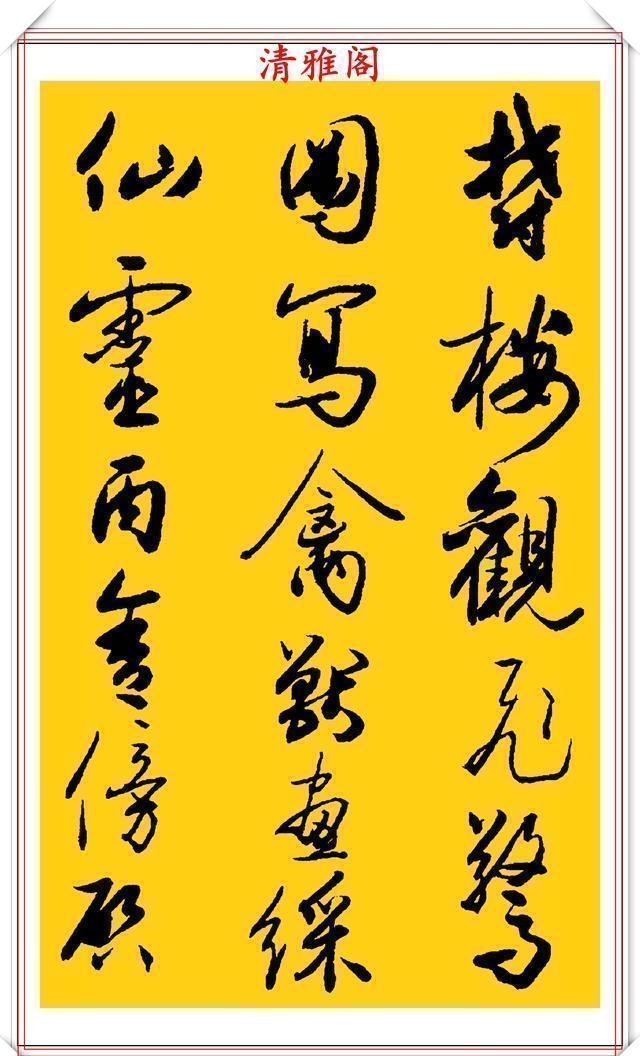 清雅阁
鬱樓觀飛驚
圖寫禽獸畫綵
仙靈丙舍傍啟